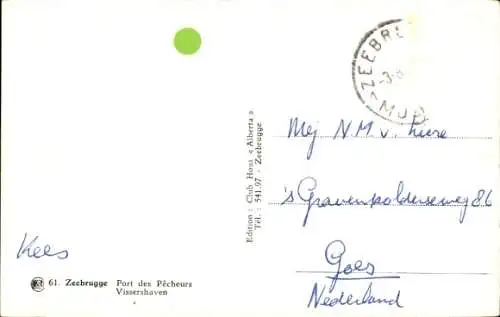 ZEEBRU
-3-8
Edition : Club House « Alberta »
Tél. : 541.97 - Zeebrugge
Mej N.M. v. Liere
's Gravenpolderseweg 86
Goes
Nederland
Kees
61. Zeebrugge Port des Pêcheurs
Vissershaven